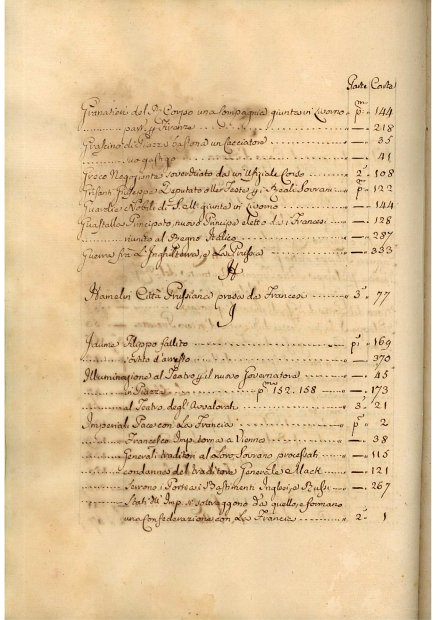 Parte Carte
Granatieri del R. Corpo una Compagnia giunta in Livorno p.mo — 144
part. p. Firenze — 218
Grascino di Piazza bastona un Cacciatore — 35
suo gastigo — 41
Greco Negoziante soverchiato da un'Ufiziale Corso 2. — 108
Grifanti Giuseppe Deputato alle Feste p. i Reali Sovrani p.mo — 122
Guardie Nobili di S. M. giunte in Livorno — 144
Guastalla Principato, nuovo Principe eletto dai Francesi — 128
riunito al Regno Italico — 287
Guerra fra L'Inghilterra, e La Prussia — 333
H
Hameln Città Prussiana presa da Francesi 3. — 77
I
Jaume Filippo fallito p.mo — 169
sortito d'arresto — 370
Illuminazione al Teatro p. il nuovo Governatore — 45
in Piazza p.mo 152. 158 — 173
al Teatro degl'Avvalorati 3. — 21
Imperiali Pace con La Francia p.mo — 2
Francesco Imp. torna a Vienna — 38
Generali traditori al Loro Sovrano processati — 115
condanna del traditore Generale Mack — 121
Serrano i Porti ai Bastimenti Inglesi, e Russi — 267
Stati dell'Imp. si sottraggono da quello, e formano
una Confederazione con La Francia 2. — 1